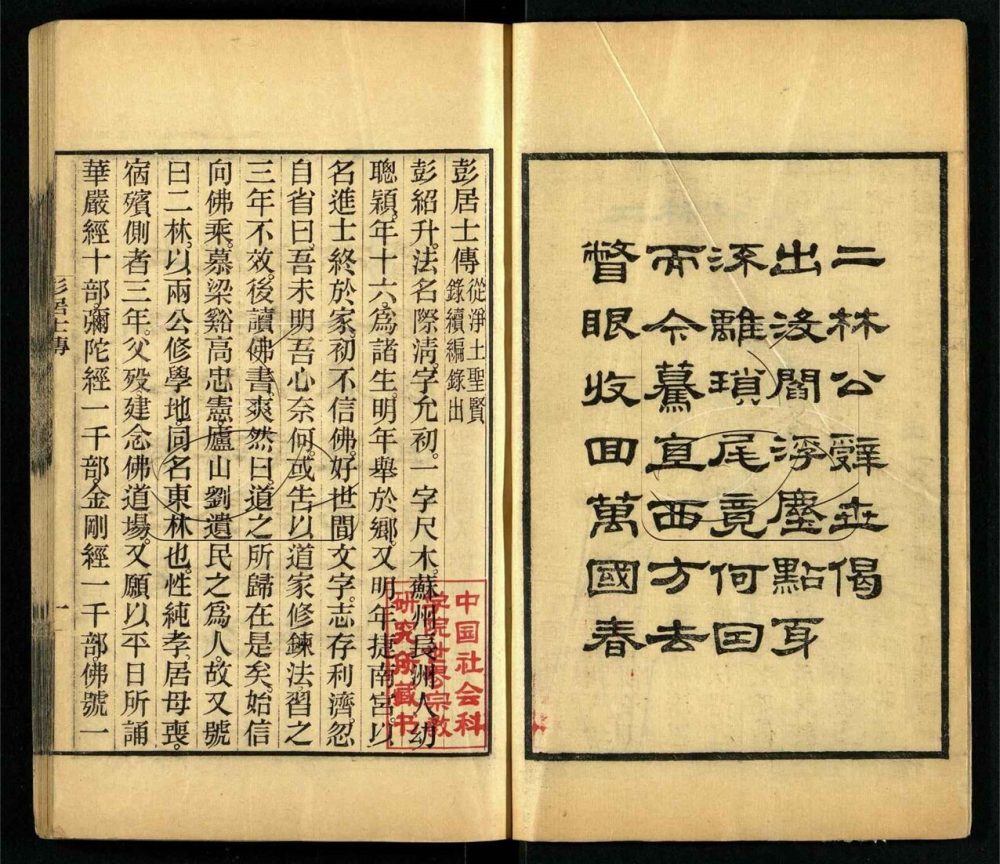 二林公辭世偈
出沒閻浮塵點身
流離瑣尾竟何囙
而今驀直西方去
瞥眼收回萬國春
彭居士傳
從淨土聖賢
錄續編錄出
彭紹升。法名際清。字允初。一字尺木。蘇州長洲人。幼
聰穎。年十六。爲諸生。明年舉於鄉。又明年捷南宮。以
名進士終於家。初不信佛。好世間文字。志存利濟。忽
自省曰。吾未明吾心奈何。或告以道家修鍊法。習之
三年不效。後讀佛書。爽然曰。道之所歸在是矣。始信
向佛乘。慕梁谿高忠憲。廬山劉遺民之爲人。故又號
曰二林。以兩公修學地。同名東林也。性純孝。居母喪。
宿殯側者三年。父歿建念佛道場。又願以平日所誦
華嚴經十部。彌陀經一千部。金剛經一千部。佛號一
彭居士傳
一
中国社会科
学院世界宗教
研究所藏书